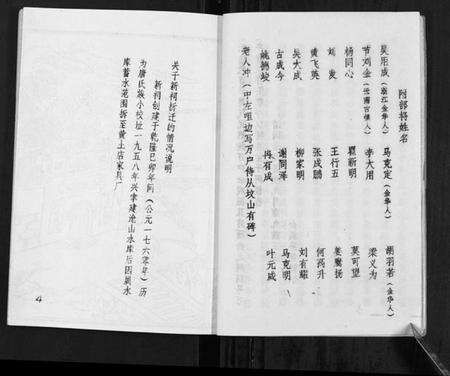 附部将姓名
吴用成(浙江金华人) 马克定(金华人) 胡羽若(金华人)
节刘金(云南官模人) 李大用 梁义为
杨同心 瞿新明 莫可望
刘发 王行五 姜鹰扬
黄飞英 张成鹏 何鸿升
吴大成 柳家明 刘有耀
古成今 谢同泽 马克明
姚攀蛟 梅有成 叶元盛
老人冲(中左咀边写万户侍从坟山有碑)
关于新祠拆迁的情况说明
新祠创建于乾隆巳卯年间(公元一七六零年)历
为唐氏族小校址一九五八年兴索建沧山水库后因蓄水
库蓄水范围拆至黄土店家具厂
4